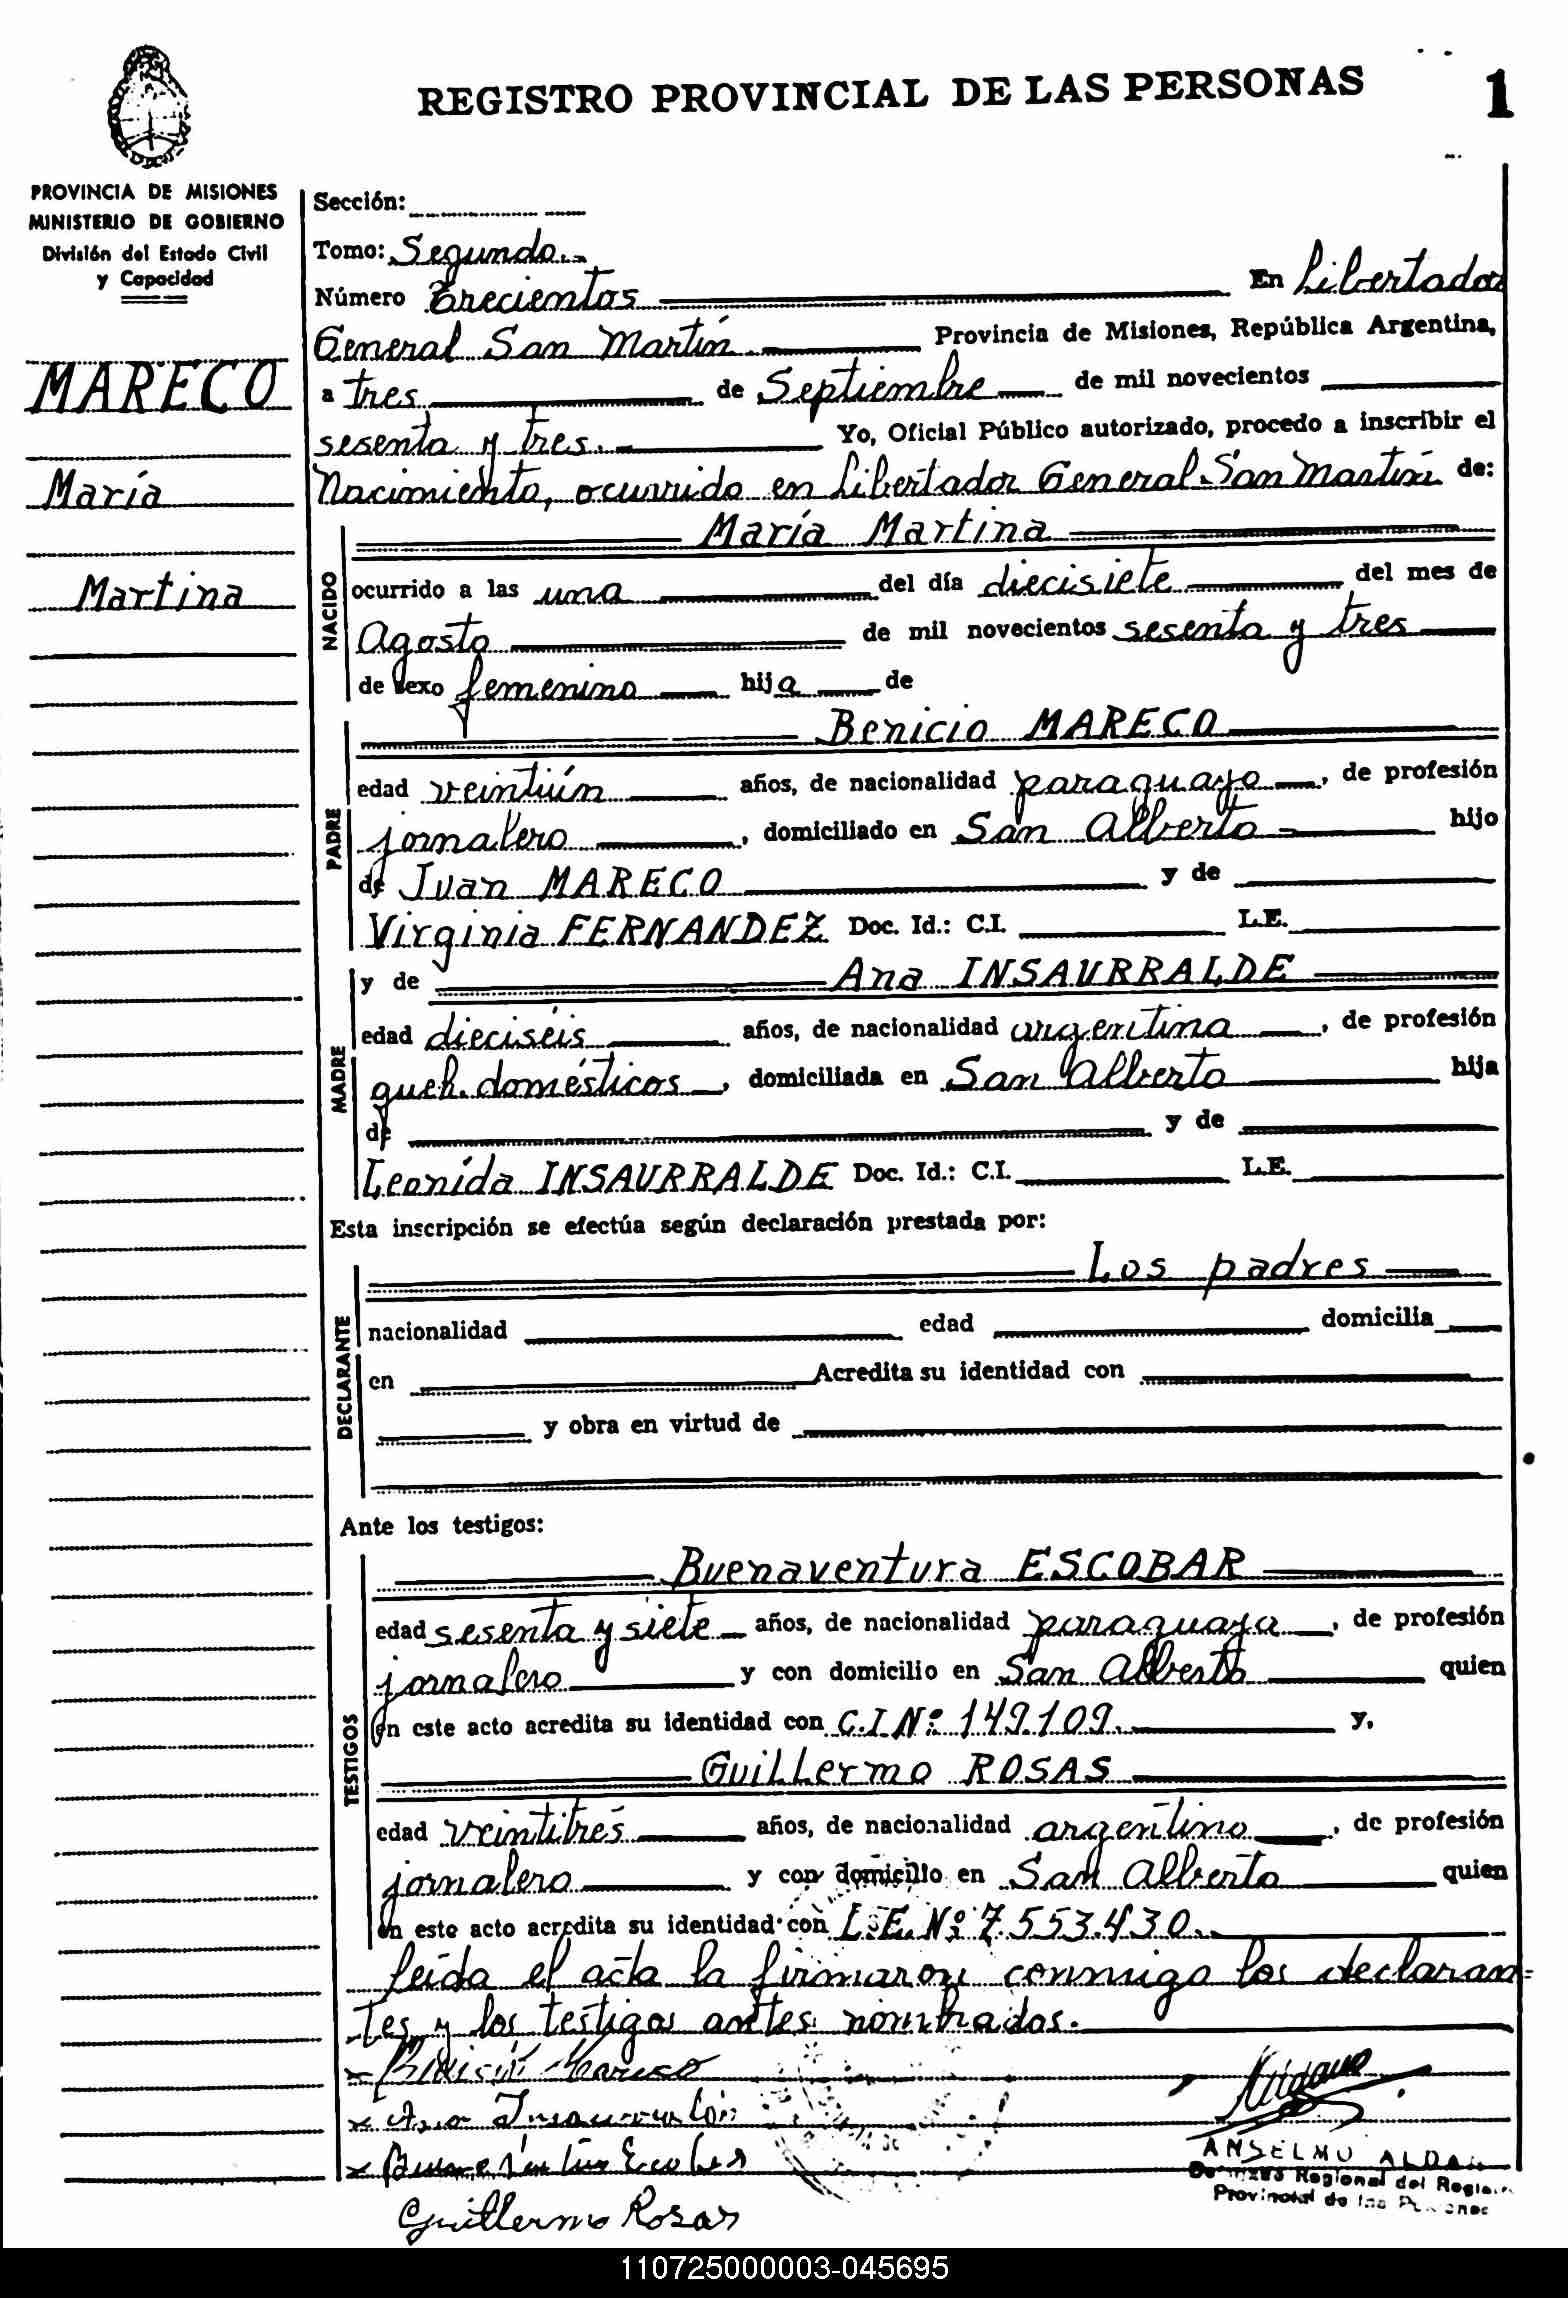 REGISTRO PROVINCIAL DE LAS PERSONAS 1
PROVINCIA DE MISIONES
MINISTERIO DE GOBIERNO
División del Estado Civil
y Capacidad
MARECO
María
Martina
Sección:
Tomo: Segundo.
Número Trecientos En Libertador
General San Martín. Provincia de Misiones, República Argentina,
a tres de Septiembre de mil novecientos
sesenta y tres. Yo, Oficial Público autorizado, procedo a inscribir el
Nacimiento, ocurrido en Libertador General San Martín de:
NACIDO
María Martina
ocurrido a las una del día diecisiete del mes de
Agosto de mil novecientos sesenta y tres
de sexo femenino hija de
PADRE
Benicio MARECO
edad veintiún años, de nacionalidad paraguayo, de profesión
jornalero, domiciliado en San Alberto hijo
de Juan MARECO y de
Virginia FERNANDEZ Doc. Id.: C.I. L.E.
MADRE
y de Ana INSAURRALDE
edad dieciséis años, de nacionalidad argentina, de profesión
queh. domésticos, domiciliada en San Alberto hija
de y de
Leonida INSAURRALDE Doc. Id.: C.I. L.E.
Esta inscripción se efectúa según declaración prestada por:
DECLARANTE
Los padres
nacionalidad edad domicilia
en Acredita su identidad con
y obra en virtud de
Ante los testigos:
TESTIGOS
Buenaventura ESCOBAR
edad sesenta y siete años, de nacionalidad paraguaya, de profesión
jornalero y con domicilio en San Alberto quien
en este acto acredita su identidad con C.I.Nº 149.109. y,
Guillermo ROSAS
edad veintitrés años, de nacionalidad argentino, de profesión
jornalero y con domicilio en San Alberto quien
en este acto acredita su identidad con L.E. Nº 7.553.430.
Leída el acta la firmaron conmigo los declaran=
tes y los testigos antes nombrados.
x Mareco
x Ana
x Escobar
Guillermo Rosas
ANSELMO
Regional del
Provincial de las
110725000003-045695